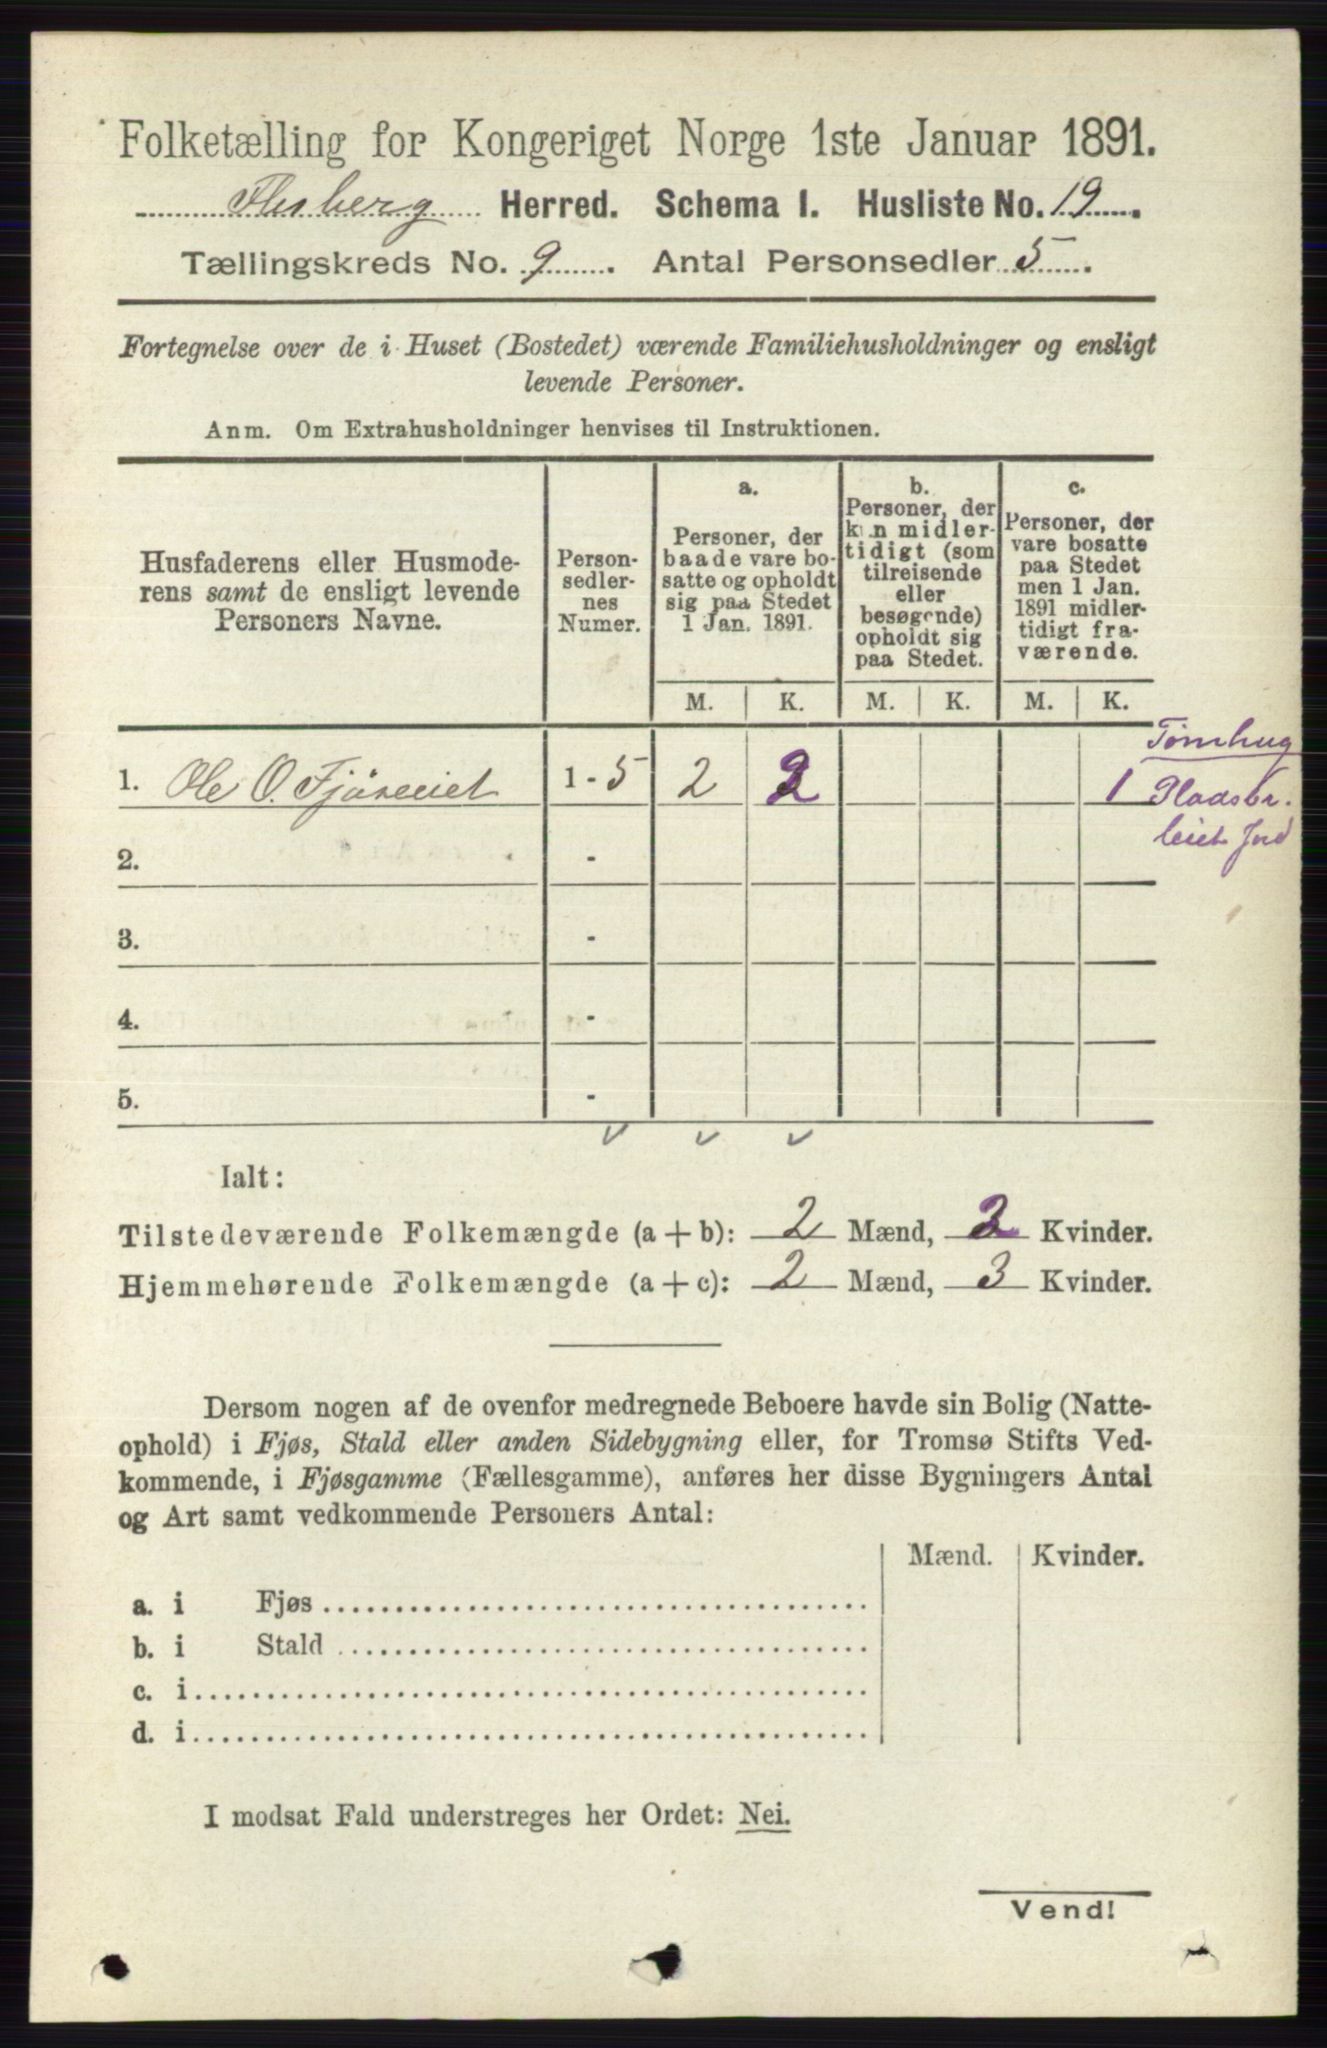 Folketælling for Kongeriget Norge 1ste Januar 1891.
Flesberg Herred. Schema I. Husliste No. 19.
Tællingskreds No. 9. Antal Personsedler 5.
Fortegnelse over de i Huset (Bostedet) værende Familiehusholdninger og ensligt
levende Personer.
Anm. Om Extrahusholdninger henvises til Instruktionen.
Husfaderens eller Husmode-
rens samt de ensligt levende
Personers Navne.
Person-
sedler-
nes
Numer.
a.
Personer, der
baade vare bo-
satte og opholdt
sig paa Stedet
1 Jan. 1891.
b.
Personer, der
kun midler-
tidigt (som
tilreisende
eller
besøgende)
opholdt sig
paa Stedet.
c.
Personer, der
vare bosatte
paa Stedet
men 1 Jan.
1891 midler-
tidigt fra-
værende.
M. K. M. K. M. K.
1. Ole O. 1 - 5 2 2 1
Pladsbr.
leiet Jord
2. -
3. -
4. -
5. -
Ialt:
Tilstedeværende Folkemængde (a + b): 2 Mænd, 2 Kvinder.
Hjemmehørende Folkemængde (a + c): 2 Mænd, 3 Kvinder.
Dersom nogen af de ovenfor medregnede Beboere havde sin Bolig (Natte-
ophold) i Fjøs, Stald eller anden Sidebygning eller, for Tromsø Stifts Ved-
kommende, i Fjøsgamme (Fællesgamme), anføres her disse Bygningers Antal
og Art samt vedkommende Personers Antal:
Mænd. Kvinder.
a. i Fjøs
b. i Stald
c. i
d. i
I modsat Fald understreges her Ordet: Nei.
Vend!